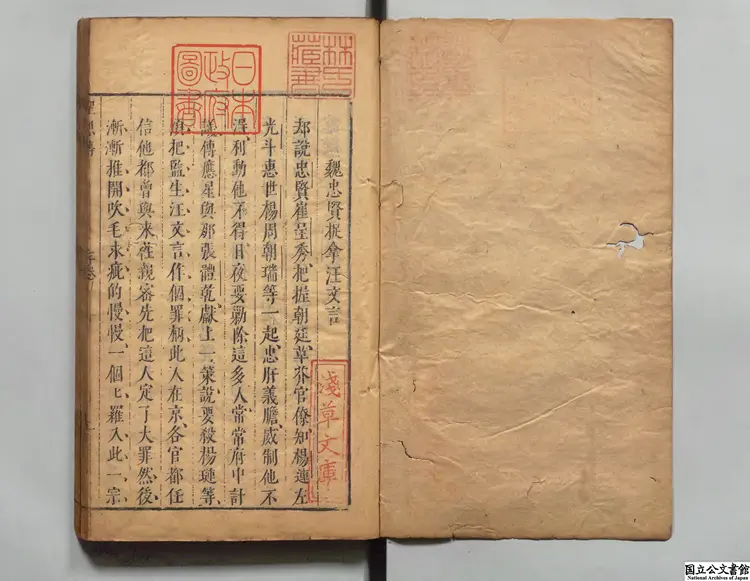 林氏藏書
日本政府圖書
魏忠賢捉拿汪文言
却說忠賢崔呈秀把握朝廷草芥官僚知楊漣左
光斗惠世楊周朝瑞等一起忠肝義膽威制他不
得利動他不得日夜要勦除這多人常常府中計
議傅應星與那張體乾獻上一策說要殺楊璉等
須把監生汪文言作個罪柄此人在京各官都任
信他都曾與来往親審先把這人定了大罪然後
漸漸推開吹毛求疵的慢慢一個匕羅入此一宗
淺草文庫
国立公文書館
National Archives of Japan